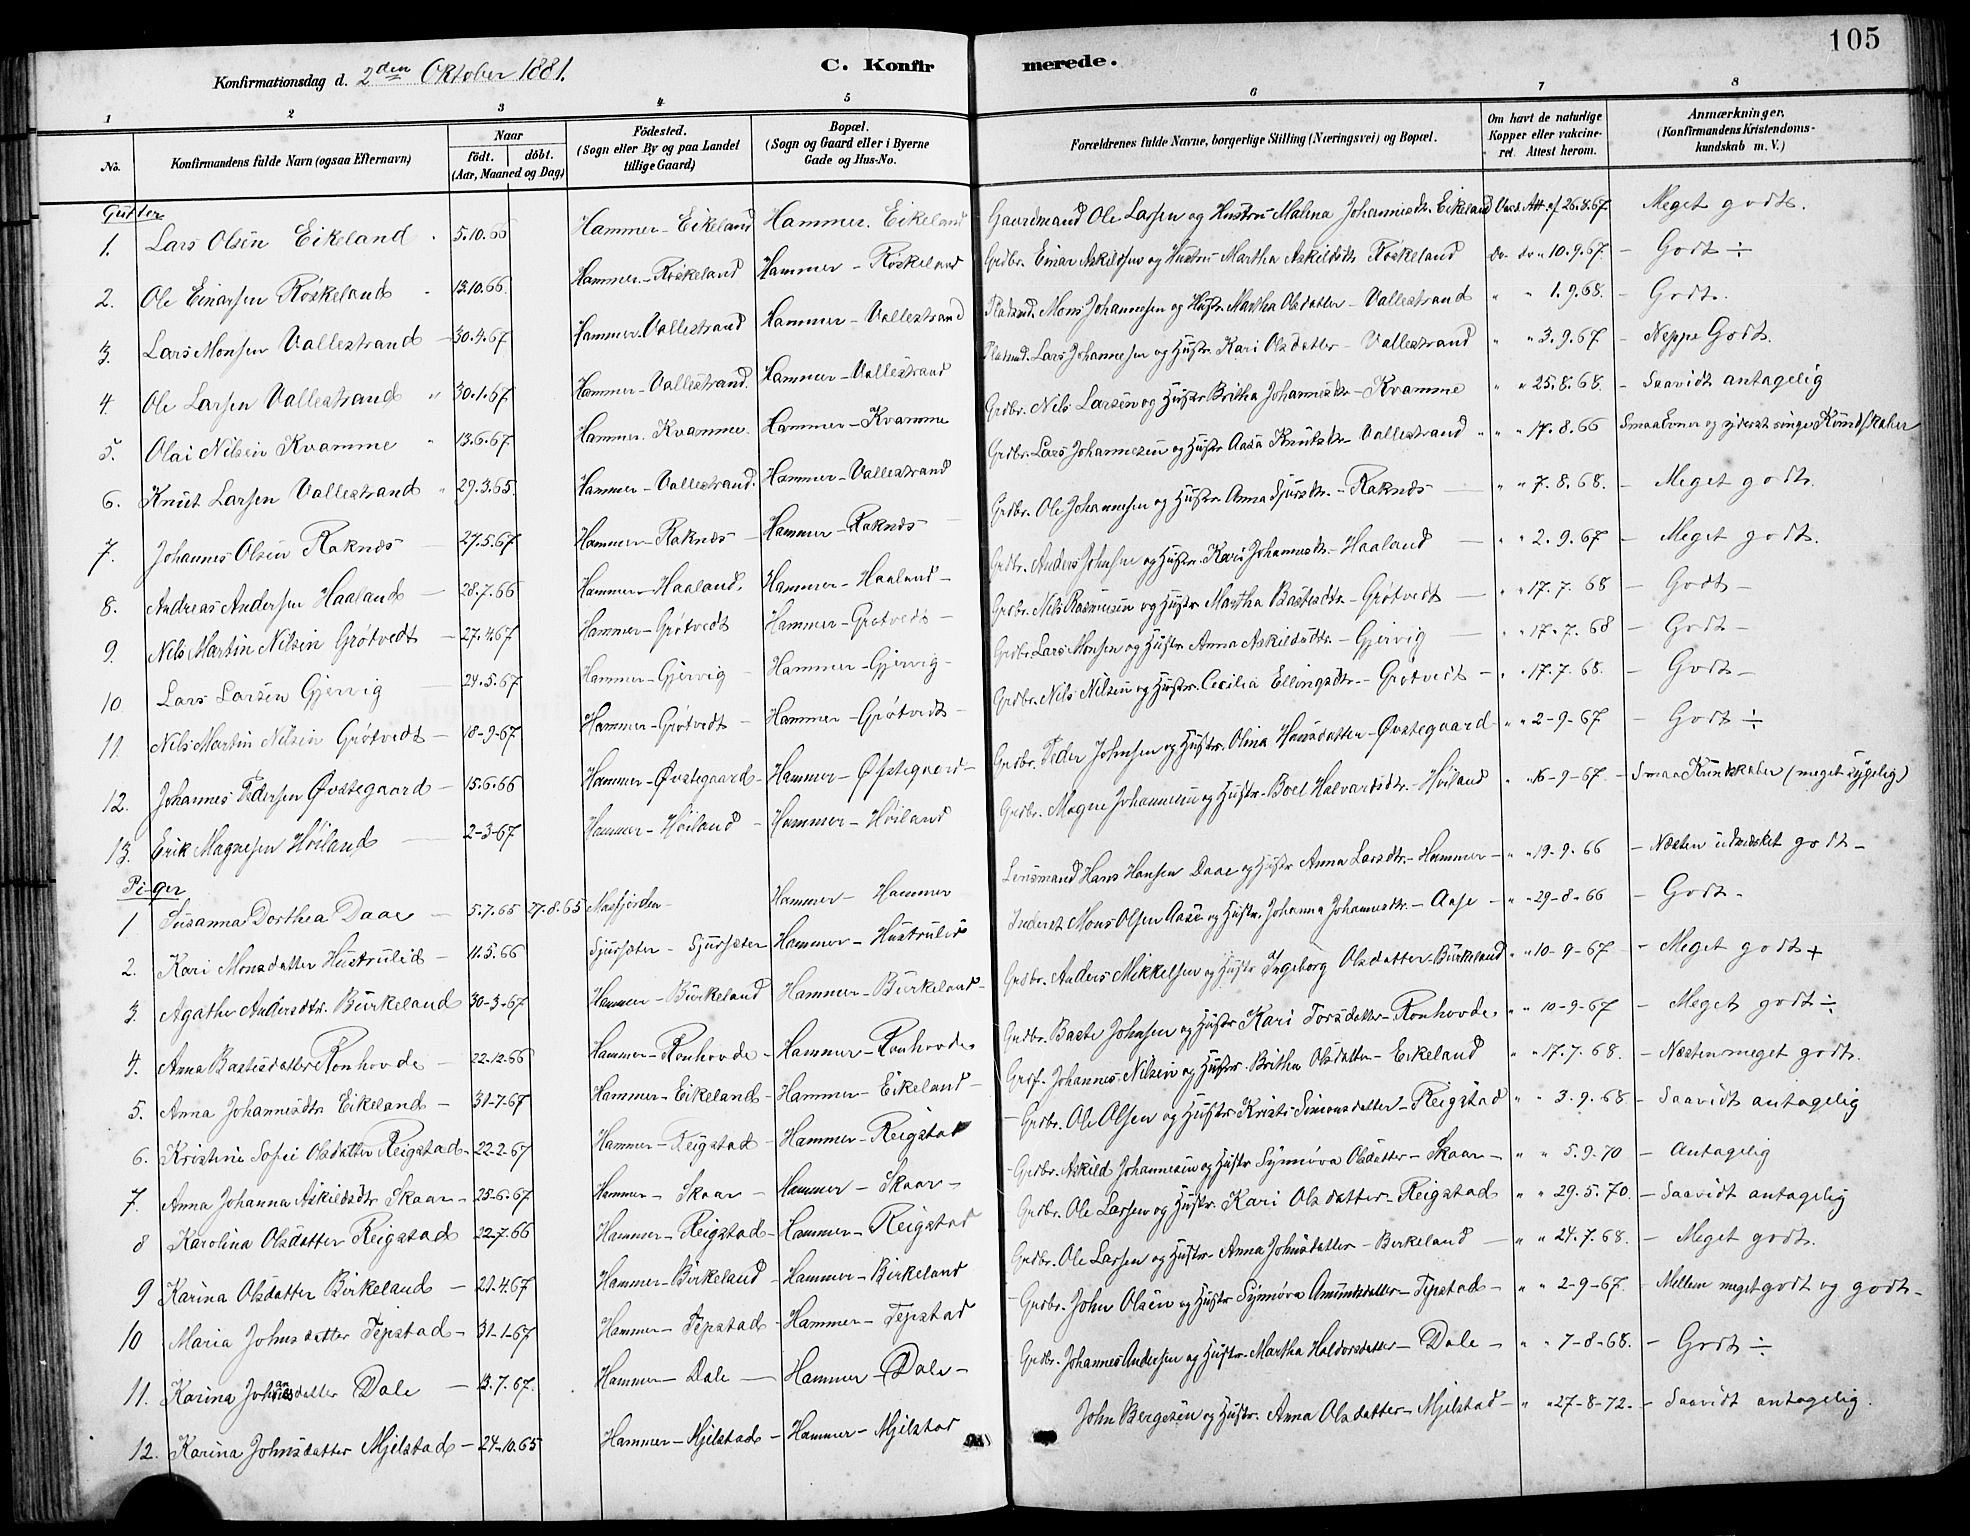 105
Konfirmationsdag d. 2den Oktober 1881.
C. Konfir merede.
1 2 3 4 5 6 7 8
No.
Konfirmandens fulde Navn (ogsaa Efternavn)
Naar
födt. döbt.
(Aar, Maaned og Dag)
Födested.
(Sogn eller By og paa Landet
tillige Gaard)
Bopæl.
(Sogn og Gaard eller i Byerne
Gade og Hus-No.
Forældrenes fulde Navne, borgerlige Stilling (Næringsvei) og Bopæl.
Om havt de naturlige
Kopper eller vakcine-
ret. Attest herom.
Anmærkninger.
(Konfirmandens Kristendoms-
kundskab m. V.)
Gutter
1. Lars Olsen Eikeland 5.10.66 Hammer-Eikeland Hammer. Eikeland Gaardmand Ole Larsen og Hustru Malena Johannesdtr. Eikeland Vacc. Att. af 26.8.67 Meget godt.
2. Ole Einarsen Röskeland 13.10.66. Hammer-Röskeland Hammer-Röskeland Grdbr. Einar Askildsen og Hustru Martha Askildsdtr Röskeland Do. do " 10.9.67. - Godt ÷
3. Lars Monsen Vallestrand 30.4.67 Hammer-Vallestrand Hammer-Vallestrand Pladsmd. Mons Johannesen og Hustr. Martha Olsdatter-Vallestrand " " 1.9.68. - Godt.
4. Ole Larsen Vallestrand " 30.1.67. Hammer-Vallestrand. Hammer-Vallestrand Pladsmd. Lars Johannesen og Hustr. Kari Olsdatter-Vallestrand " " 3.9.67 - Neppe Godt.
5. Olai Nilsen Kvamme " 13.6.67. Hammer. Kvamme. Hammer-Kvamme Grdbr. Nils Larsen og Hustr. Britha Johannesdtr-Kvamme " " 25.8.68. - Saavidt antagelig
6. Knut Larsen Vallestrand " 29.3.65. Hammer-Vallestrand. Hammer-Vallestrand Grdbr. Lars Johannesen og Hustr. Aasa Knutsdtr-Vallestrand " " 17.8.66 Smaa Evner og yderst ringe Kundskaber
7. Johannes Olsen Raknes - 27.5.67 Hammer-Raknes Hammer-Raknes Grdbr. Ole Johannesen og Hustr. Anna Sjursdtr.-Raknes " " 7.8.68. - Meget godt.
8. Andreas Andersen Haaland - 28.7.66 Hammer-Haaland. Hammer-Haaland- Grdbr. Anders Johnsen og Hustr. Kari Johannesdtr-Haaland " " 2.9.67 - Meget godt.
9. Nils Martin Nilsen Grötvedt - 27.4.67 Hammer-Grötvedt Hammer-Grötvedt- Grdbr. Nils Rasmusen og Hustr. Martha Bastesdtr-Grötvedt " " 17.7.68 - Godt-
10. Lars Larsen Gjervig - 24.5.67 Hammer-Gjervig - Hammer-Gjervig- Grdbr. Lars Monsen og Hustr. Anna Askildsdtr.-Gjervig " " 17.7.68 - Godt-
11. Nils Martin Nilsen Grötvedt - 18-9-67 Hammer-Grötvedt - Hammer-Grötvedt- Grdbr. Nils Nilsen og Hustr. Cecilia Ellingsdtr.-Grötvedt - " " 17.7.68. - Godt-
12. Johannes Pedersen Øvstegaard - 15.6.66 Hammer-Øvstegaard - Hammer-Øfstegaard- Grdbr. Peder Johnsen og Hustr. Olina Hansdatter-Øvstegaard " " 2-9-67 - Godt ÷
13. Erik Magnesen Höiland - 2-3-67 Hammer-Höiland - Hammer-Höiland Grdbr. Magne Johannesen og Hustr. Boel Halvardsdtr.-Höiland " 16-9-67. - Smaa Kundskaber (meget sygelig)
Piger
1 Susanna Dorthea Daae - 5.7.65 27.8.65 Masfjorden- Hammer-Hammer Lensmand Hans Hansen Daae og Hustr. Anna Larsdtr.-Hammer - " " 19-9.66 - Næsten udmærket godt-
2. Kari Monsdatter Hustrulid - 11.5.66 Sjursæter-Sjursæter Hammer-Hustrulid Inderst Mons Olsen Aase og Hustr. Johanna Johannesdtr.-Aase - " " 29-8-66 - Godt-
3. Agathe Andersdtr. Birkeland 30-3-67 Hammer-Birkeland Hammer-Birkeland- Grdbr. Anders Mikkelsen og Hustr Ingeborg Olsdatter-Birkeland " " 10-9-67 - Meget godt +
4. Anna Bastesdatter Ronhovde - 22-12-66 Hammer-Ronhovde - Hammer-Ronhovde Grdbr. Baste Johnsen og Hustr Kari Torsdatter-Ronhovde. " " 10-9-67 - Meget godt ÷
5. Anna Johannesdtr Eikeland - 31-7-67 Hammer-Eikeland - Hammer-Eikeland- Grdf. Johannes Nilsen og Hustr. Britha Olsdatter-Eikeland " " 17.7.68. - Næsten meget godt.
6. Kristine Sofie Olsdatter Reigstad - 22-2-67 Hammer-Reigstad - Hammer-Reigstad Grdbr. Ole Olsen og Hustr. Kristi Simonsdatter-Reigstad " " 3.9.68 - Saavidt antagelig
7. Anna Johanna Askildsdtr Skaar - 25-6.67 Hammer-Skaar - Hammer-Skaar- Grdbr. Askild Johannesen og Hustr Synnöva Olsdatter-Skaar - " " 5.9.70 - Antagelig
8 Karolina Olsdatter Reigstad 22-7.66 Hammer-Reigstad - Hammer-Reigstad Grdbr. Ole Larsen og Hustr. Kari Olsdatter-Reigstad " " 29.5.70. - Saavidt antagelig
9 Karina Olsdatter Birkeland - 21.4.67 Hammer-Birkeland - Hammer-Birkeland Grdbr. Ole Larsen og Hustr. Anna Johnsdatter-Birkeland - " " 24.7.68. - Meget godt.
10 Maria Johnsdatter Tepstad - 31-1-67 Hammer-Tepstad - Hammer-Tepstad Grdbr. John Olsen og Hustr Synnöva Amundsdatter-Tepstad - " " 2-9-67. - Mellem meget godt og godt-
11. Karina Johannesdatter Dale - 13.7.67. Hammer-Dale - Hammer-Dale- Grdbr. Johannes Andersen og Hustr. Martha Haldorsdatter-Dale - " " 7-8-68. - Godt ÷
12. Karina Johnsdatter Mjelstad - 24-10.65 Hammer-Mjelstad - Hammer-Mjelstad John Bergesen og Hustr. Anna Olsdatter-Mjelstad - " " 27-8-72. - Saavidt antagelig.